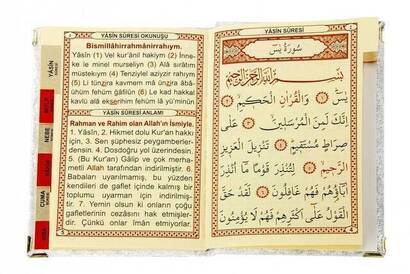 YÂSİN SÛRESİ OKUNUŞU
Bismillâhirrahmânirrahıym.
Yâsîn (1) Vel kur'ânil hakiym (2) İnne-
ke le minel murseliyn (3) Alâ sırâtım
müstekıym (4) Tenziylel aziyzir rahıym
(5) Li tünzira kavmem mâ ünzira âbâ-
ühüm fehüm ğâfilûn (6) Le kad hakkal
kavlü alâ ekserihim fehüm lâ yü'minûn
YÂSİN SÛRESİ ANLAMI
Rahman ve Rahim olan Allah'ın İsmiyle.
1. Yâsîn, 2. Hikmet dolu Kur'an hakkı
için, 3. Sen şüphesiz peygamberler-
densin. 4. Dosdoğru yol üzerindesin.
5. (Bu Kur'an) Gâlip ve çok merha-
metli Allah tarafından indirilmiştir. 6.
Babaları uyarılmamış, bu yüzden
kendileri de gaflet içinde kalmış bir
toplumu uyarman için indirilmiş-
tir. 7. Yemin olsun ki onların çoğu
gafletlerinin cezasını hak etmişler-
dir. Çünkü onlar îmân etmiyorlar.
YÂSİN
NEBE
CUMA
YÂSİN SÛRESİ
سُورَةُ يٰسٓ
بِسْمِ اللّٰهِ الرَّحْمٰنِ الرَّحِيمِ
يٰسٓ ﴿١﴾ وَالْقُرْاٰنِ الْحَكِيمِ ﴿٢﴾
اِنَّكَ لَمِنَ الْمُرْسَلِينَ ﴿٣﴾ عَلٰى
صِرَاطٍ مُسْتَقِيمٍ ﴿٤﴾ تَنْزِيلَ الْعَزِيزِ
الرَّحِيمِ ﴿٥﴾ لِتُنْذِرَ قَوْمًا مَٓا اُنْذِرَ
اٰبَٓاؤُهُمْ فَهُمْ غَافِلُونَ ﴿٦﴾ لَقَدْ حَقَّ
الْقَوْلُ عَلٰٓى اَكْثَرِهِمْ فَهُمْ لَا يُؤْمِنُونَ